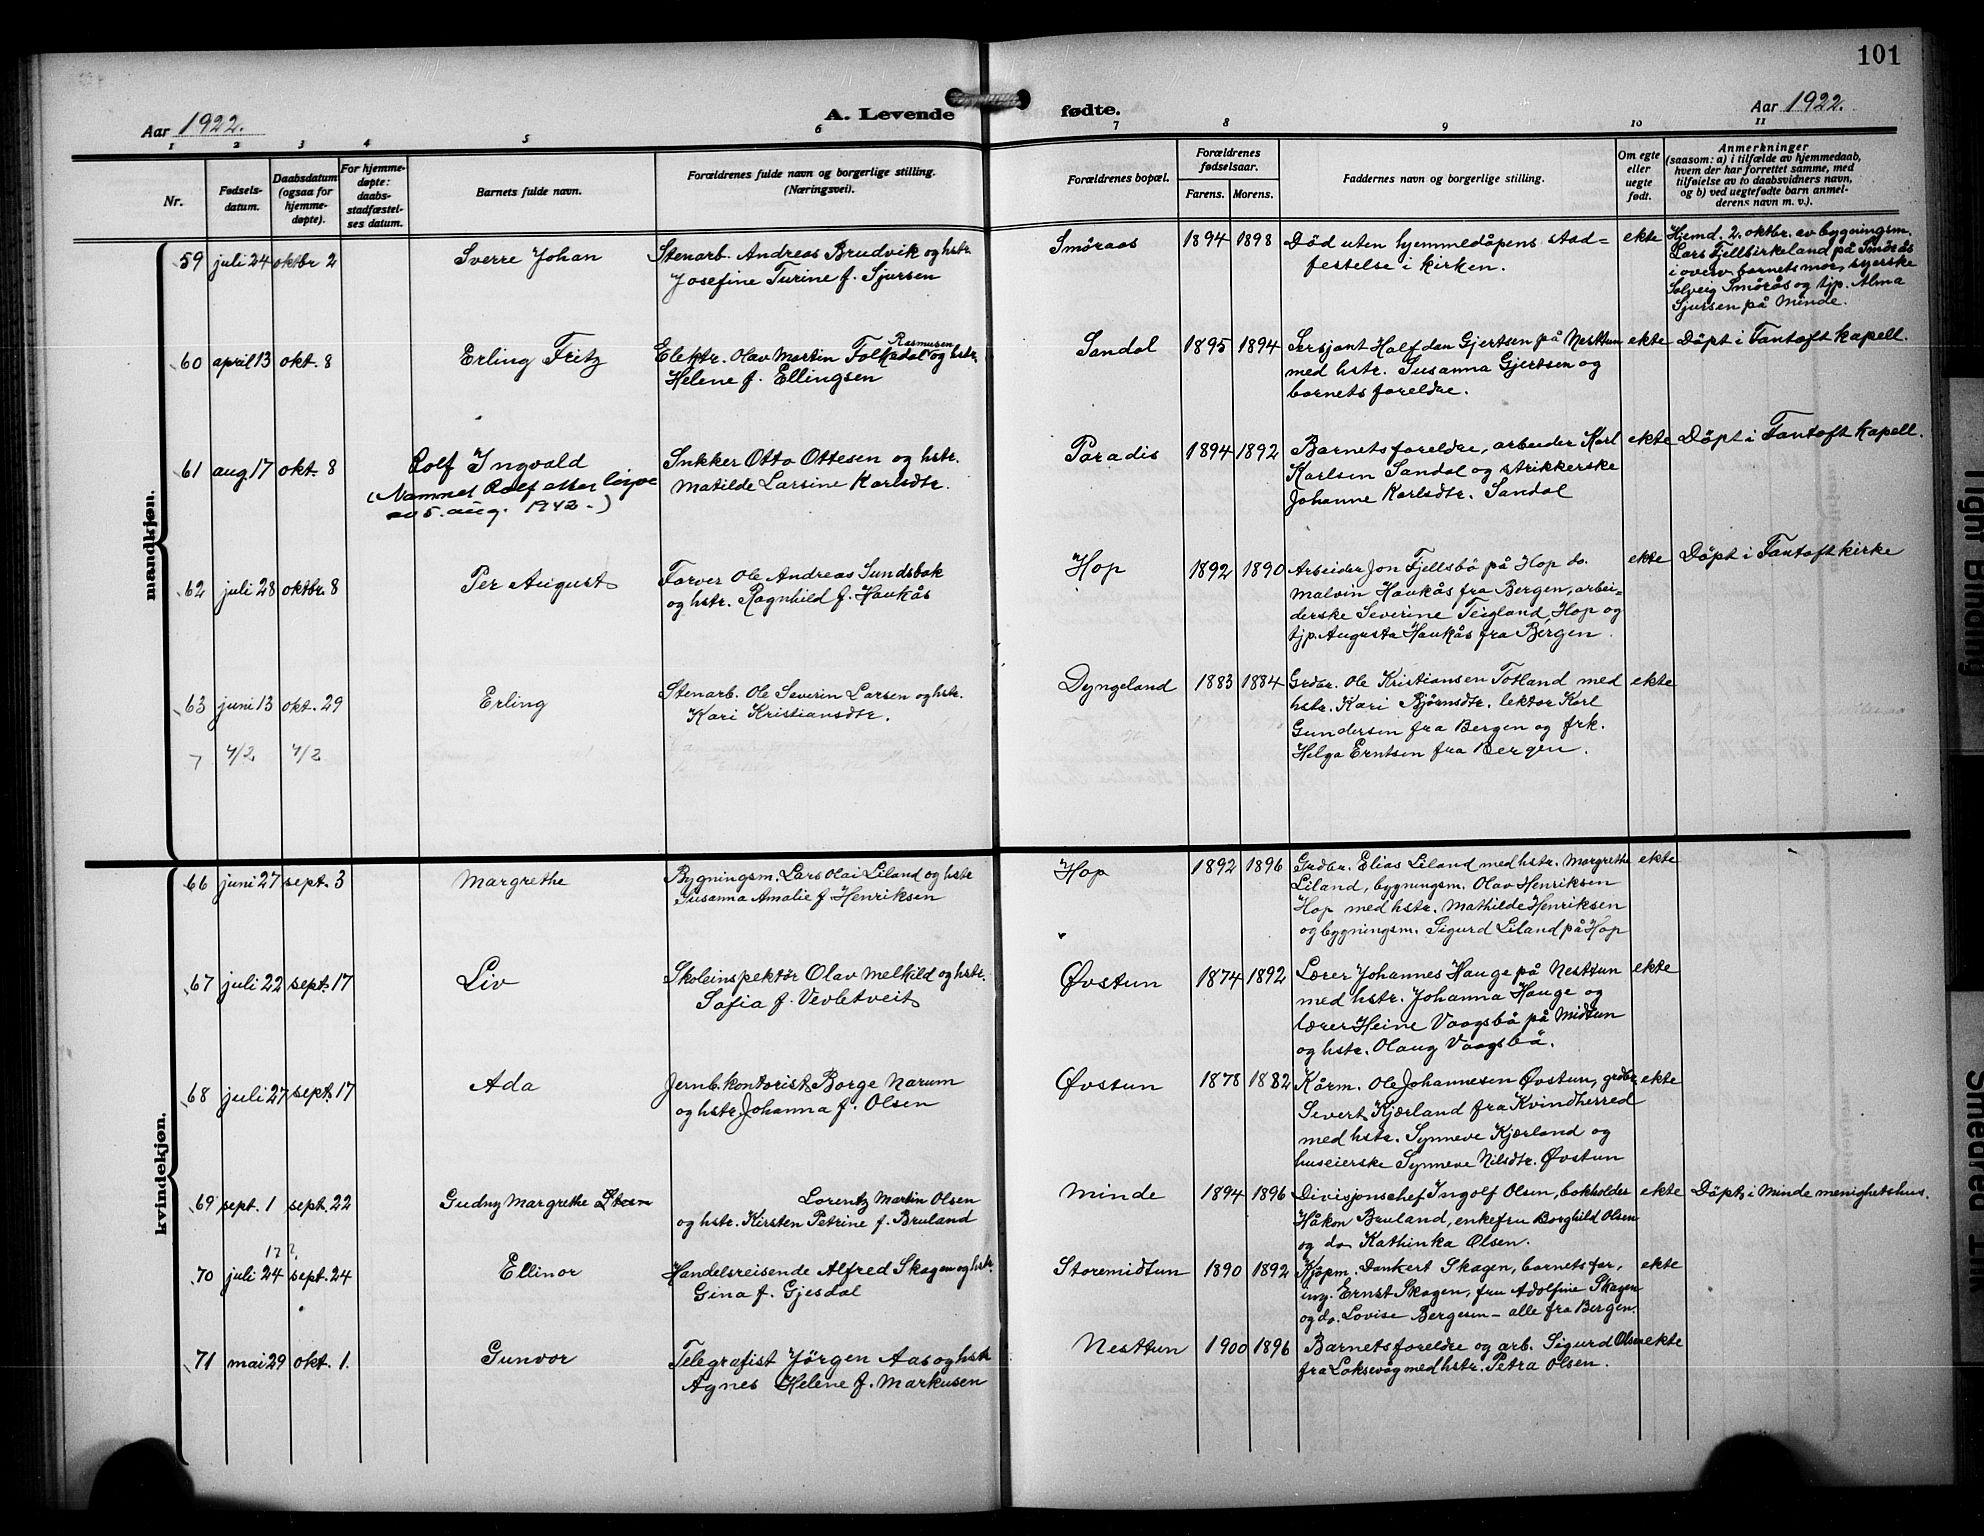 101
Aar 1922. A. Levende fødte. Aar 1922.
1 2 3 4 5 6 7 8 9 10 11
Nr.
Fødsels-
datum.
Daabsdatum
(ogsaa for
hjemme-
døpte).
For hjemme-
døpte:
daabs-
stadfæstel-
ses datum.
Barnets fulde navn.
Forældrenes fulde navn og borgerlige stilling.
(Næringsvei).
Forældrenes bopæl.
Forældrenes
fødselsaar.
Farens. Morens.
Faddernes navn og borgerlige stilling.
Om egte
eller
uegte
født.
Anmerkninger
(saasom: a) i tilfælde av hjemmedaab,
hvem der har forrettet samme, med
tilføielse av to daabsvidners navn,
og b) ved uegtefødte barn anmel-
derens navn m. v.).
mandkjøn.
59 juli 24 oktbr 2
Sverre Johan
Stenarb. Andreas Brudvik og hstr
Josefine Turine f. Sjursen
Smöraas
1894 1898
Död uten hjemmedåpens stad=
festelse i kirken.
ekte
Hjemd. 2. oktbr. av bygningsm.
Lars Fjellbirkeland på Smörås
i overv. barnets mor, syerske
Solveig Smörås og tjp. Alma
Sjursen på Minde.
60 april 13 okt. 8
Erling Fritz
Rasmusen
Elektr. Olav Martin Folkedal og hstr.
Helene f. Ellingsen
Sandal
1895 1894
Sersjant Halfdan Gjertsen på Nesttun
med hstr. Susanna Gjertsen og
barnets foreldre.
ekte
Döpt i Fantoft kapell.
61 aug. 17 okt. 8
Rolf Ingvald
(Navnet Rolf etter
av 5. aug. 1942.)
Snkker Otto Ottesen og hstr.
Matilde Larsine Karlsdtr.
Paradis
1894 1892
Barnets foreldre, arbeider Karl
Karlsen Sandal og strikkerske
Johanne Karlsdtr. Sandal
ekte
Döpt i Fantoft kapell.
62 juli 28 oktbr. 8
Per August
Farver Ole Andreas Sundsbak
og hstr. Ragnhild f. Haukås
Hop
1892 1890
Arbeider Jon Fjellsbö på Hop do.
Malvin Haukås fra Bergen, arbei-
derske Severine Teigland, Hop og
tjp. Augusta Haukås fra Bergen.
ekte
Döpt i Fantoft kirke
63 juni 13 okt. 29
Erling
Stenarb. Ole Severin Larsen og hstr.
Kari Kristiansdtr.
Dyngeland
1883 1884
Grdbr. Ole Kristiansen Totland med
hstr. Kari Bjørnsdtr. lektor Karl
Gundersen fra Bergen og frk.
Helga Erntsen fra Bergen.
ekte
7 4/2 4/2
kvindekjøn.
66 juni 27 sept. 3
Margrethe
Bygningsm. Lars Olai Liland og hstr
Susanna Amalie f. Henriksen
Hop
1892 1896
Grdbr. Elias Liland med hstr. Margrethe
Liland, bygningsm. Olav Henriksen
Hop med hstr. Mathilde Henriksen
og bygningsm. Sigurd Liland på Hop
ekte
67 juli 22 sept. 17
Liv
Skoleinspektör Olav Melkild og hstr.
Sofia f. Vevletveit
Øvstun
1874 1892
Lærer Johannes Hauge på Nesttun
med hstr. Johanna Hauge og
lærer Heine Vaagsbö på Midtun
og hstr. Olaug Vaagsbö.
ekte
68 juli 27 sept. 17
Ada
Jernb. kontorist Borge Narum
og hstr Johanna f. Olsen
Øvstun
1878 1882
Kårm. Ole Johannesen Øvstun, grdbr.
Severt Kjærland fra Kvindherred
med hstr. Synneve Kjærland og
huseierske Synneve Nilsdtr. Øvstun
ekte
69 sept. 1 sept. 22
Gudny Margrethe
Lorentz Martin Olsen
og hstr. Kirsten Petrine f. Bruland
Minde
1894 1896
Divisjonschef Ingolf Olsen, bokholder
Håkon Bruland, enkefru Borghild Olsen
og do Kathinka Olsen.
ekte
Döpt i Minde menighetshus.
17?
70 juli 24 sept. 24
Ellinor
Handelsreisende Alfred Skagen og hstr.
Gina f. Gjesdal
Storemidtun
1890 1892
Kjöpm. Dankert Skagen, barnets far,
ing. Ernst Skagen, fru Adolfine Skagen
og do. Lovise Bergesen - alle fra Bergen.
ekte
71 mai 29 okt. 1.
Gunvor
Telegrafist Jörgen Aas og hstr
Agnes Helene f. Markusen
Nesttun
1900 1896
Barnets foreldre og arb. Sigurd Olsen
fra Laksevåg med hstr. Petra Olsen.
ekte
Tight Binding
Smeared Ink